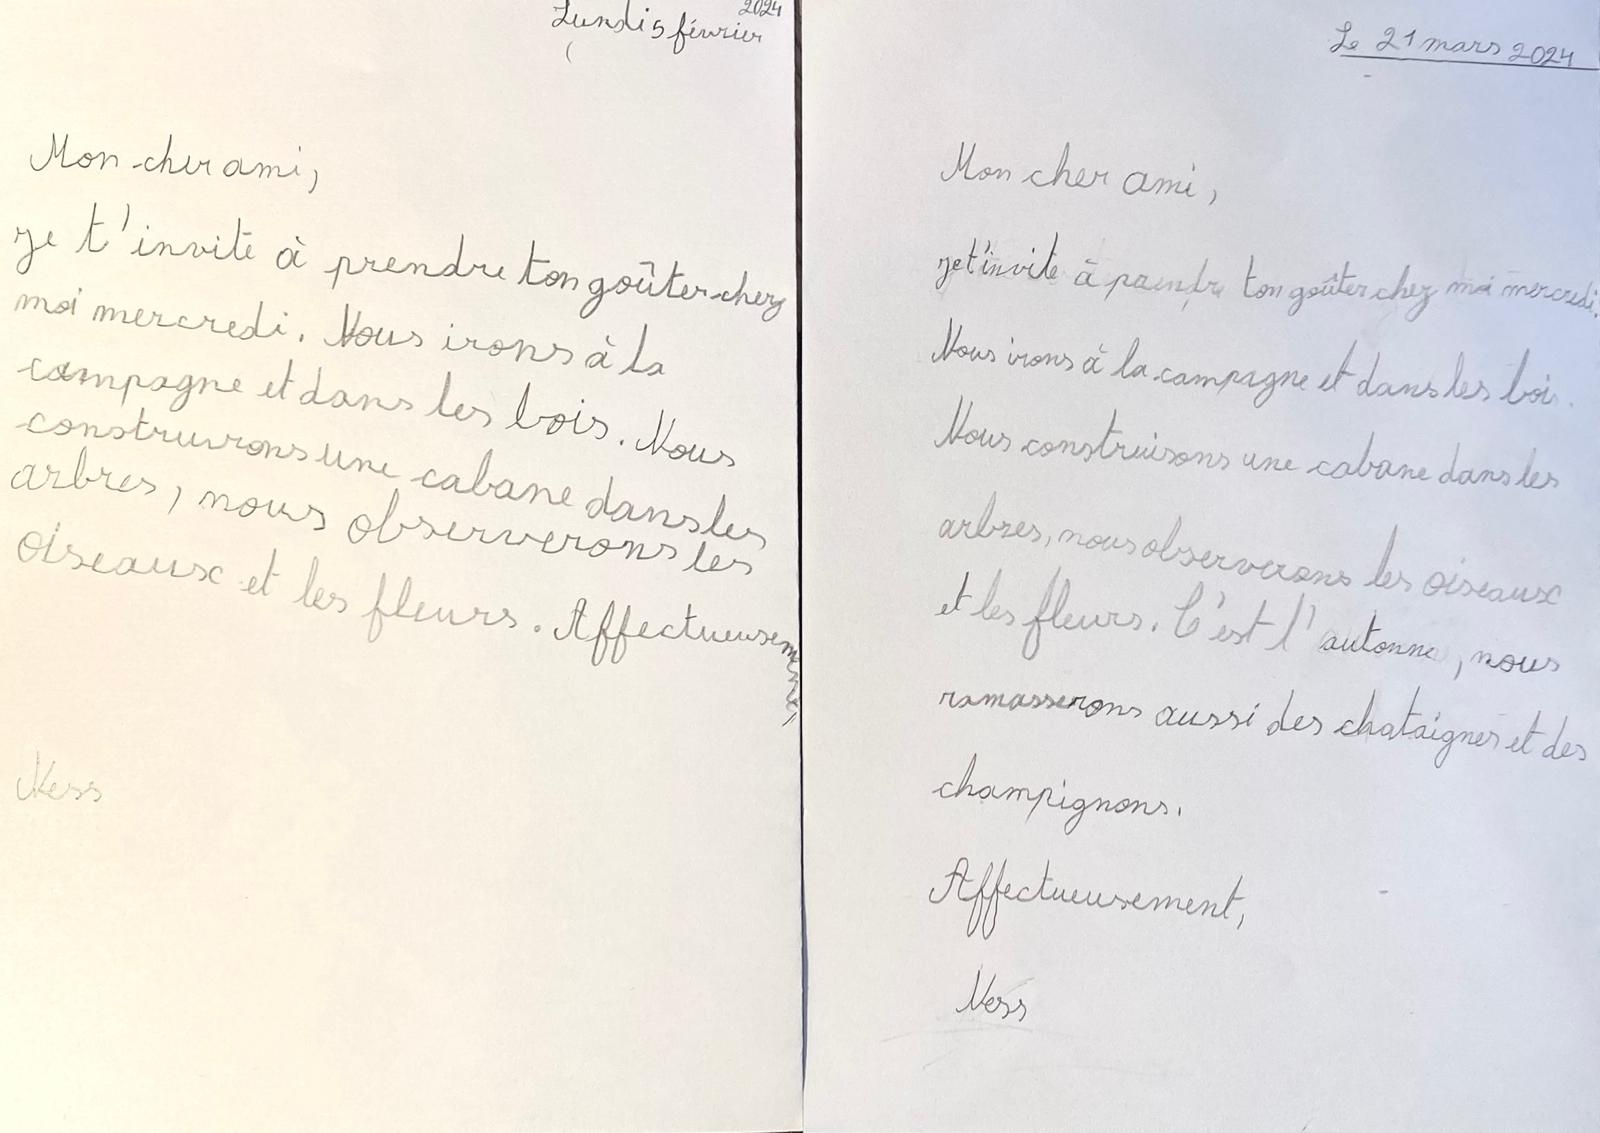 2024
Lundi 5 février
Mon cher ami,
je t'invite à prendre ton goûter chez
moi mercredi. Nous irons à la
campagne et dans les bois. Nous
construirons une cabane dans les
arbres, nous observerons les
oiseaux et les fleurs. Affectueusement,
Ness
Le 21 mars 2024
Mon cher ami,
je t'invite à prendre ton goûter chez moi mercredi.
Nous irons à la campagne et dans les bois.
Nous construisons une cabane dans les
arbres, nous observerons les oiseaux
et les fleurs. C'est l'autonne, nous
ramasserons aussi des chataignes et des
champignons.
Affectueusement,
Ness